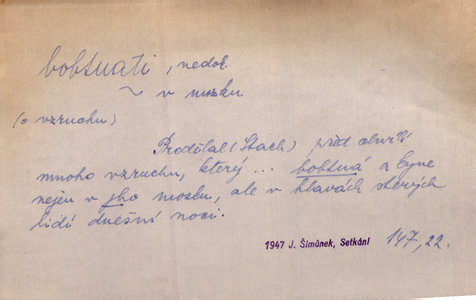 bobtnati, nedok.
~ v mozku
(o vzruchu)
Prodělal (Stach) před chvílí
mnoho vzruchu, který ... bobtná a kyne
nejen v jho mozku, ale v hlavách sterých
lidí dnešní noci.
1947 J. Šimůnek, Setkání 147, 22.